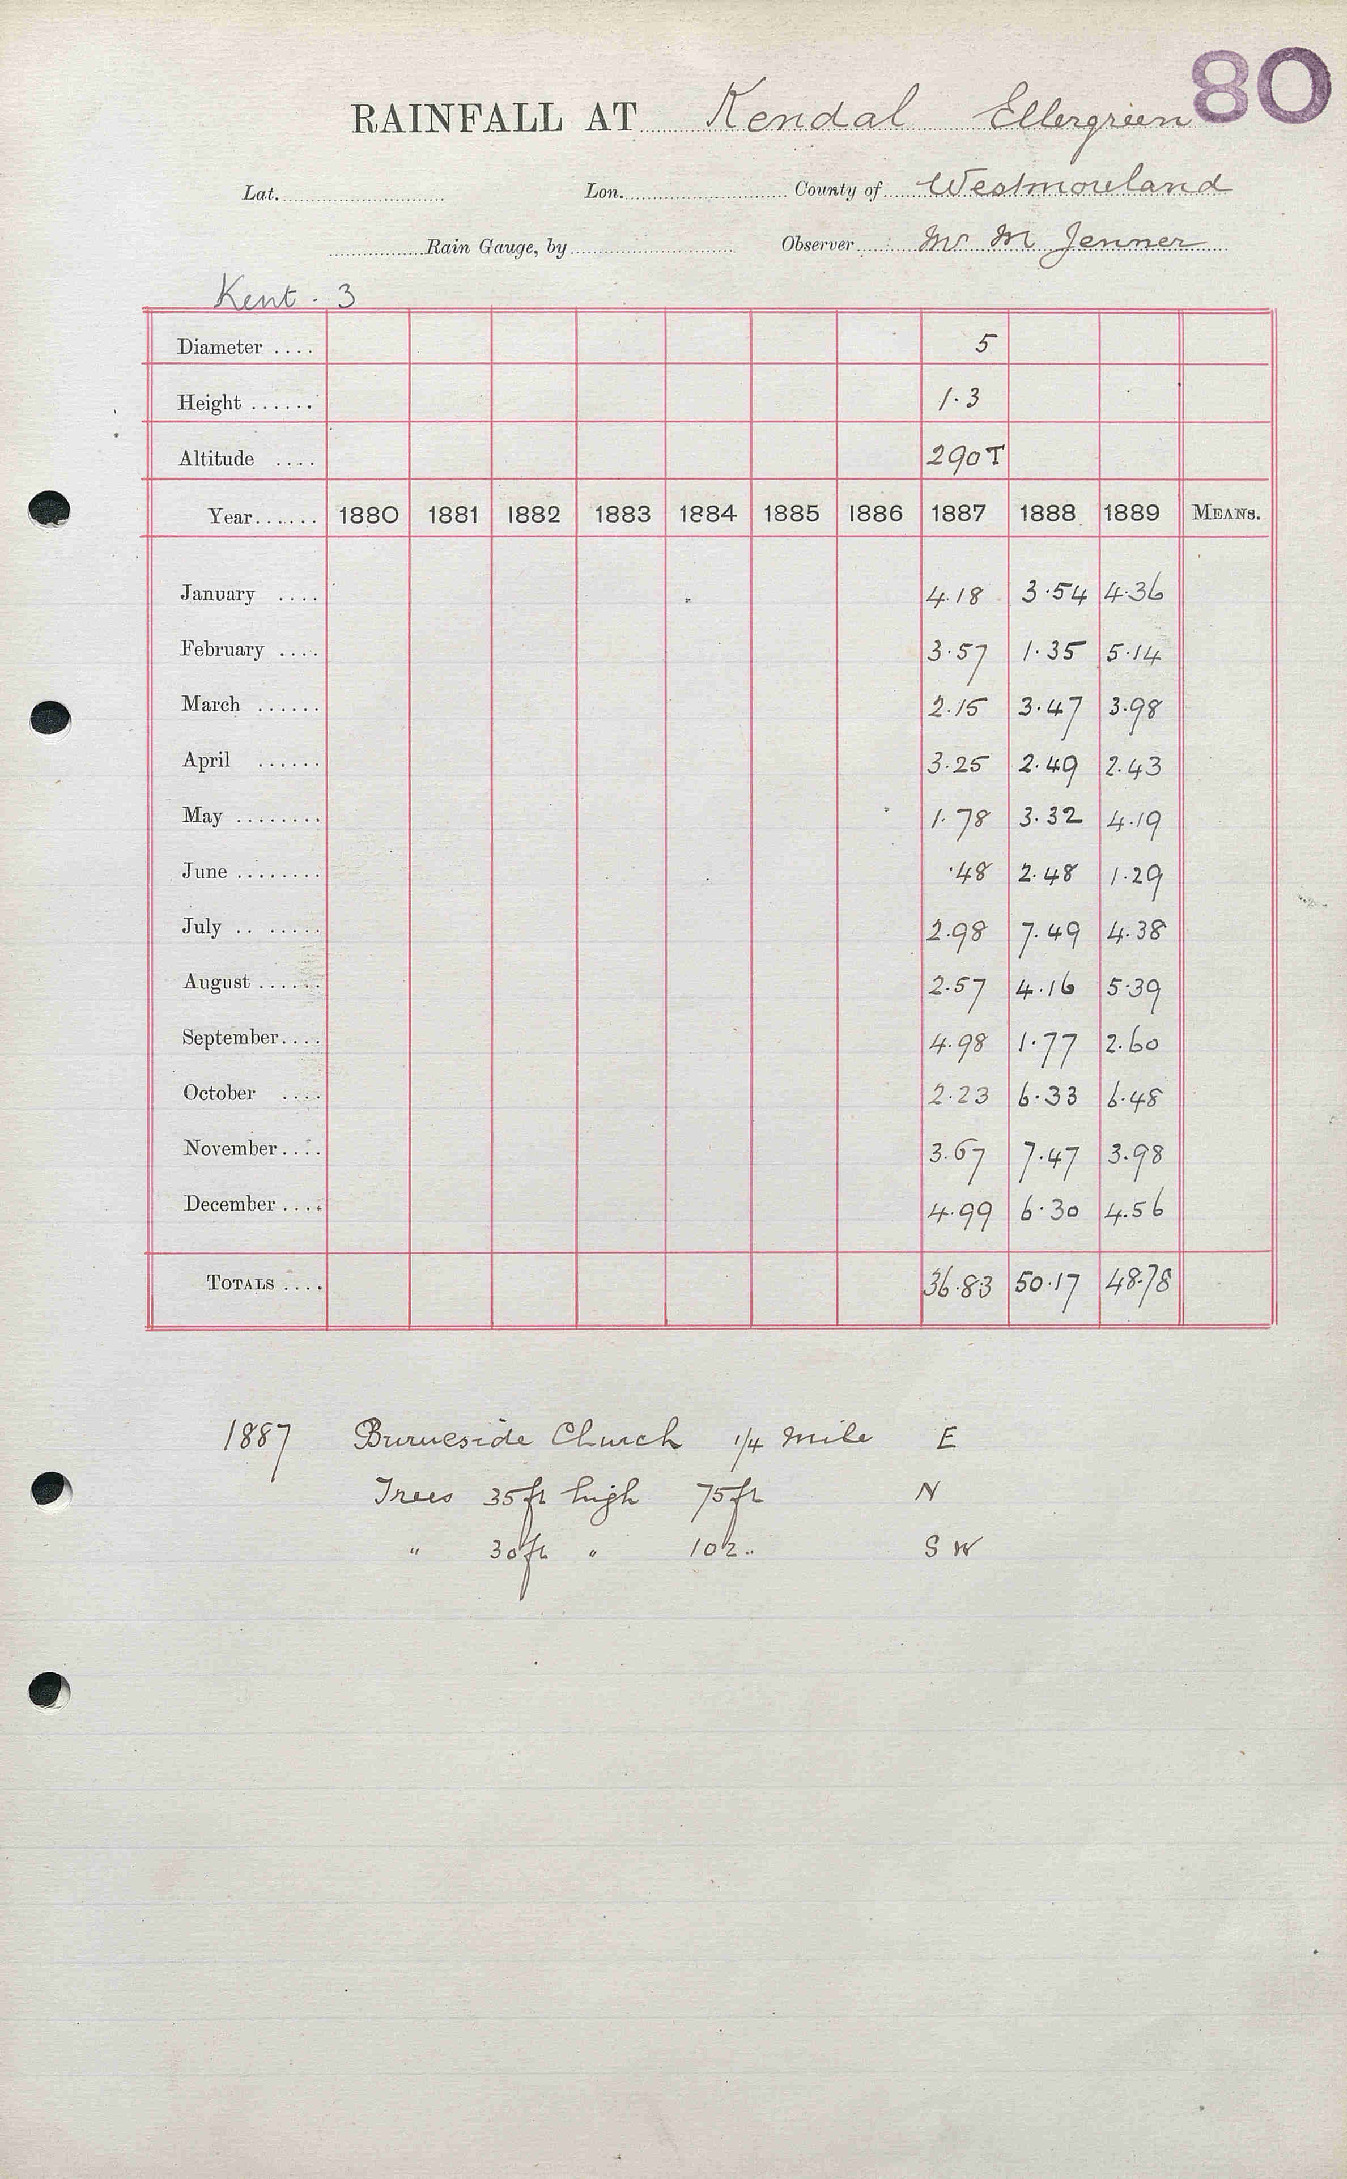 80
RAINFALL AT Kendal Ellergreen
Lat. Lon. County of Westmoreland
Rain Gauge, by Observer Mr M Jenner
Kent . 3
Diameter .... 5
Height ...... 1.3
Altitude .... 290 T
Year...... 1880 1881 1882 1883 1884 1885 1886 1887 1888 1889 MEANS.
January .... 4.18 3.54 4.36
February .... 3.57 1.35 5.14
March ...... 2.15 3.47 3.98
April ...... 3.25 2.49 2.43
May ........ 1.78 3.32 4.19
June ........ .48 2.48 1.29
July .. ..... 2.98 7.49 4.38
August ...... 2.57 4.16 5.39
September.... 4.98 1.77 2.60
October .... 2.23 6.33 6.48
November.... 3.67 7.47 3.98
December .... 4.99 6.30 4.56
TOTALS .... 36.83 50.17 48.78
1887 Burneside Church 1/4 mile E
Trees 35ft high 75ft N
" 30ft " 102 .. S W